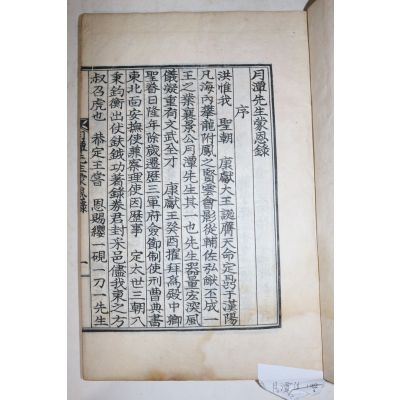 月潭先生蒙恩錄
序
洪惟我　聖朝　康獻大王誕膺天命定鼎于漢陽
凡海內攀龍附鳳之賢雲會影從輔佐弘猷丕成一
王之業襄景公月潭先生其一也先生器量宏深風
儀凝重有文武全才　康獻王癸酉擢拜爲殿中卿
聖眷日隆年除歲遷歷三軍府僉御制使刑曹典書
東北面安撫使兼察理使因歷事　定太世三朝入
秉鈞衡出仗鈇鉞功著錄券君封采邑儘我東之方
叔召虎也　恭定王嘗　恩賜纓一硯一刀一先生
月潭先生蒙恩錄
一